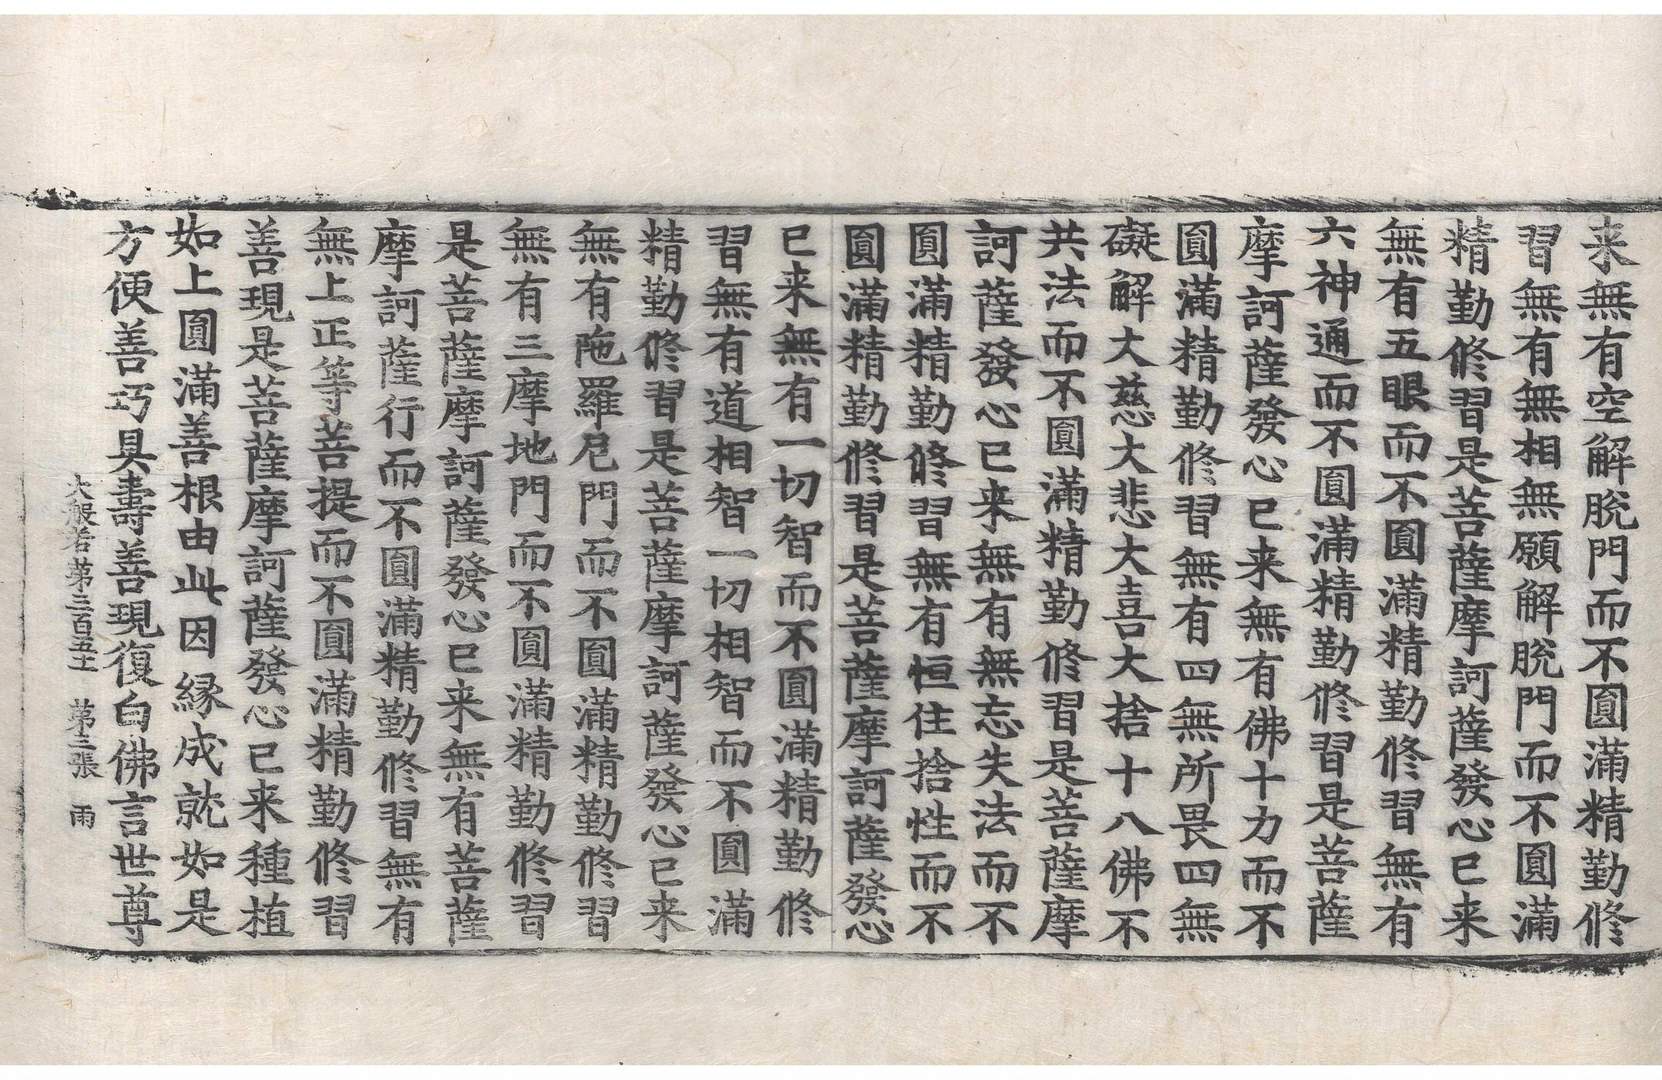 来無有空解脫門而不圓滿精勤修
習無有無相無願解脫門而不圓滿
精勤修習是菩薩摩訶薩發心已来
無有五眼而不圓滿精勤修習無有
六神通而不圓滿精勤修習是菩薩
摩訶薩發心已来無有佛十力而不
圓滿精勤修習無有四無所畏四無
礙解大慈大悲大喜大捨十八佛不
共法而不圓滿精勤修習是菩薩摩
訶薩發心已来無有無忘失法而不
圓滿精勤修習無有恒住捨性而不
圓滿精勤修習是菩薩摩訶薩發心
已来無有一切智而不圓滿精勤修
習無有道相智一切相智而不圓滿
精勤修習是菩薩摩訶薩發心已来
無有陁羅尼門而不圓滿精勤修習
無有三摩地門而不圓滿精勤修習
是菩薩摩訶薩發心已来無有菩薩
摩訶薩行而不圓滿精勤修習無有
無上正等菩提而不圓滿精勤修習
善現是菩薩摩訶薩發心已来種植
如上圓滿善根由此因縁成就如是
方便善巧具壽善現復白佛言世尊
大般若第三百五十一 第三張 雨